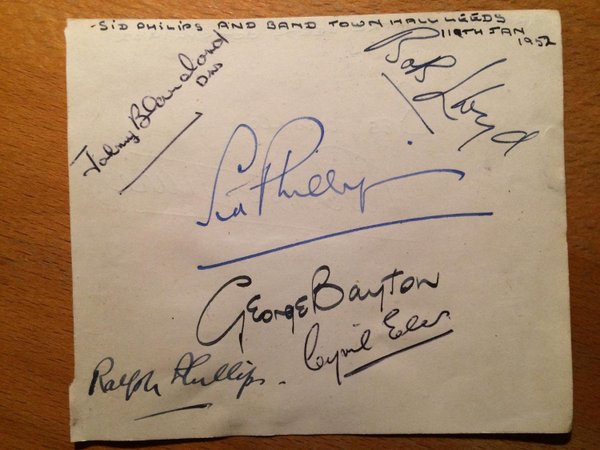 -SID PHILIPS AND BAND TOWN HALL LEEDS
119TH JAN
1952
Johnny
Bob Lloyd
Sid Phillips
GEORGE BAYTON
Cyril
Ralph Phillips.